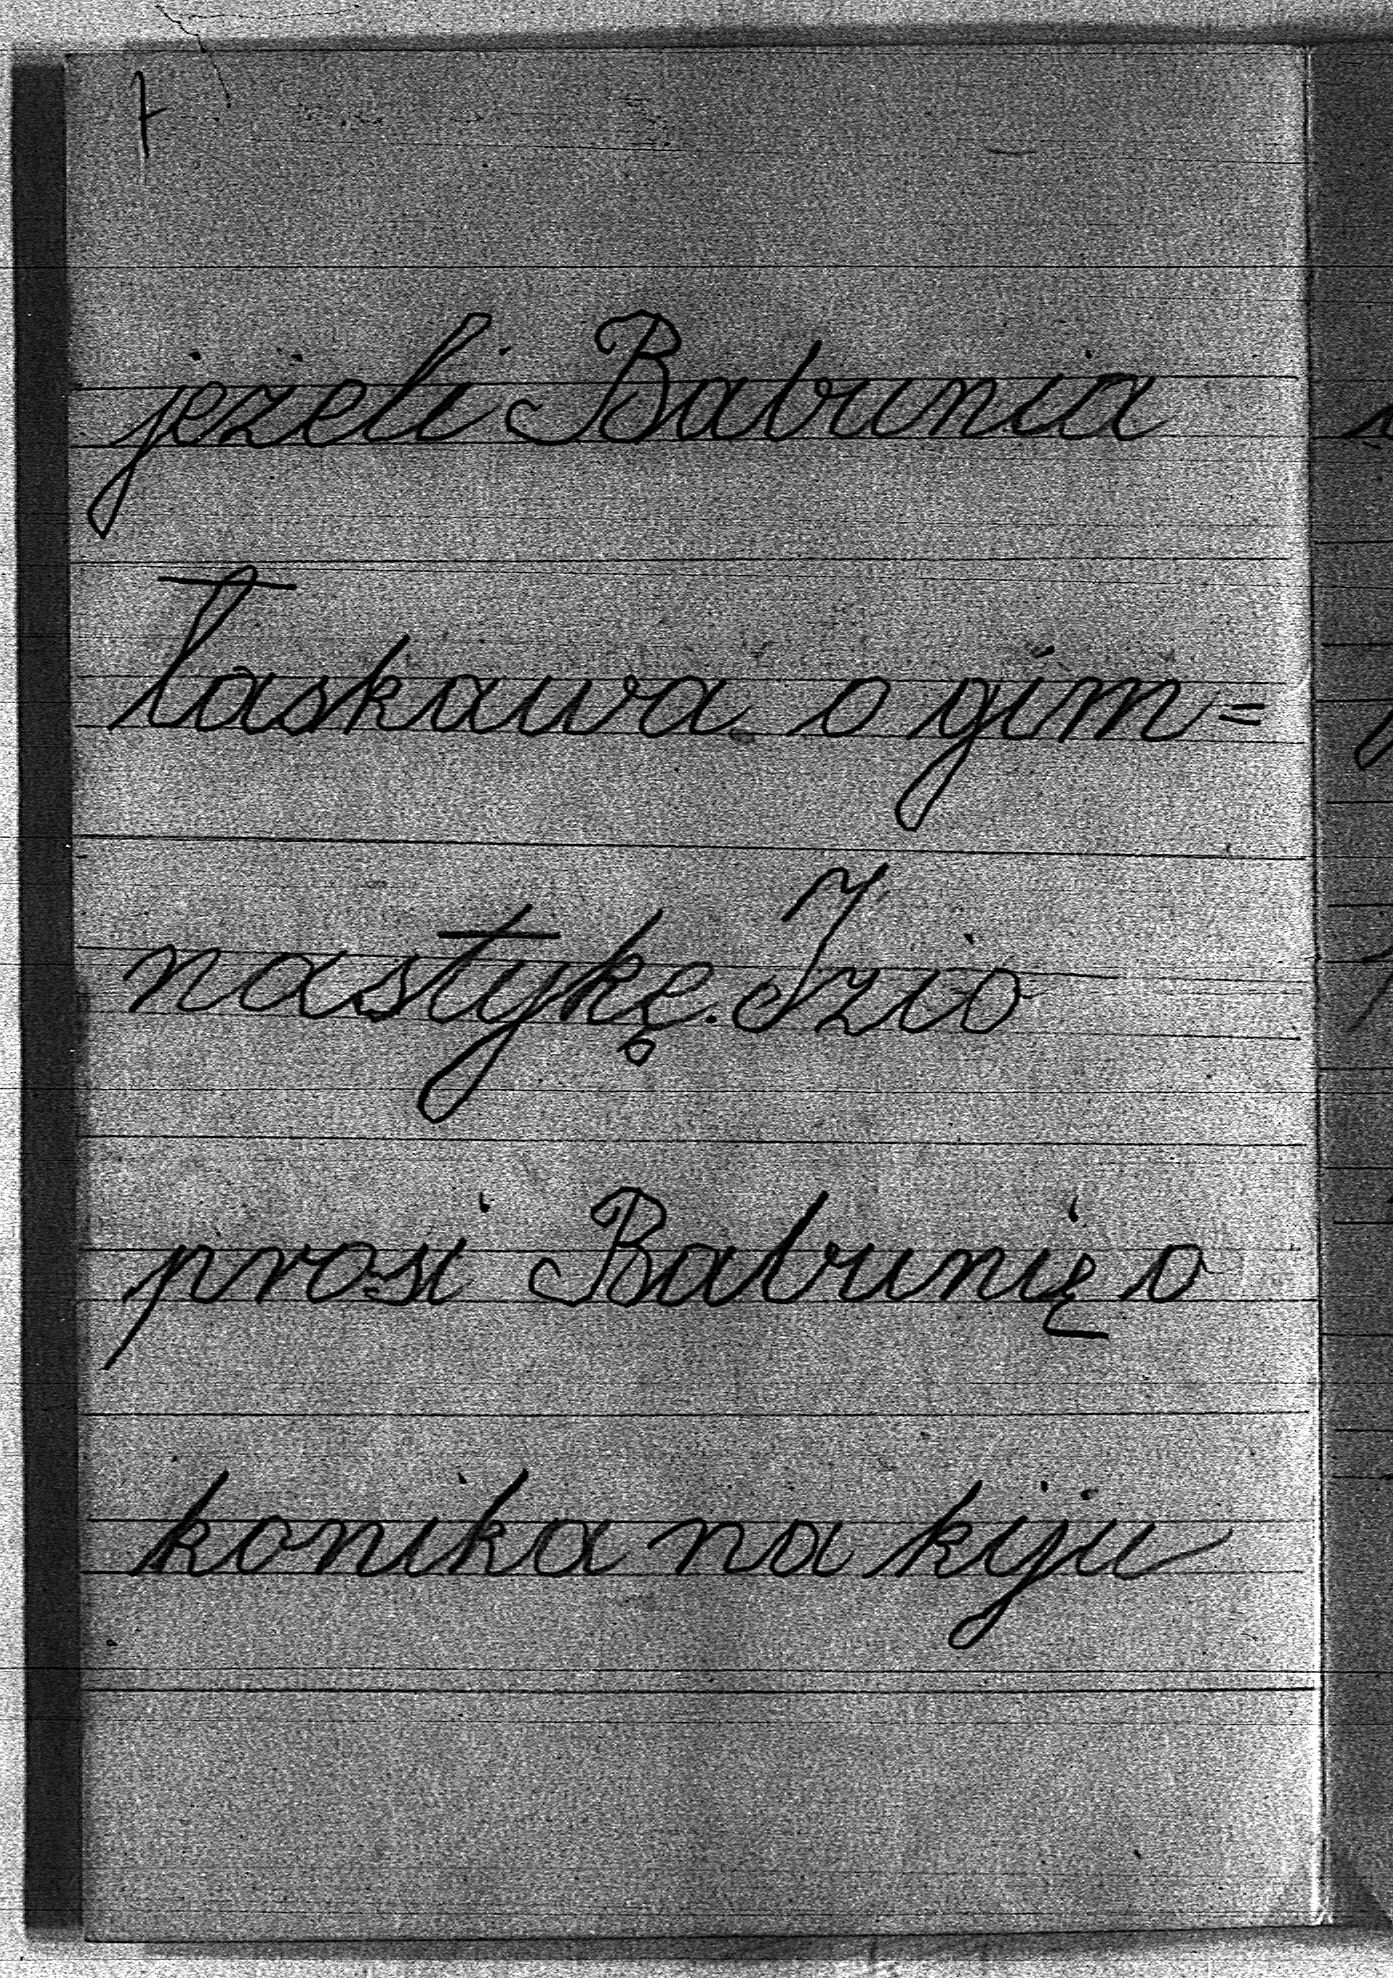 jeżeli Babunia
łaskawa o gim=
nastykę. Izio
prosi Babunię o
konika na kiju